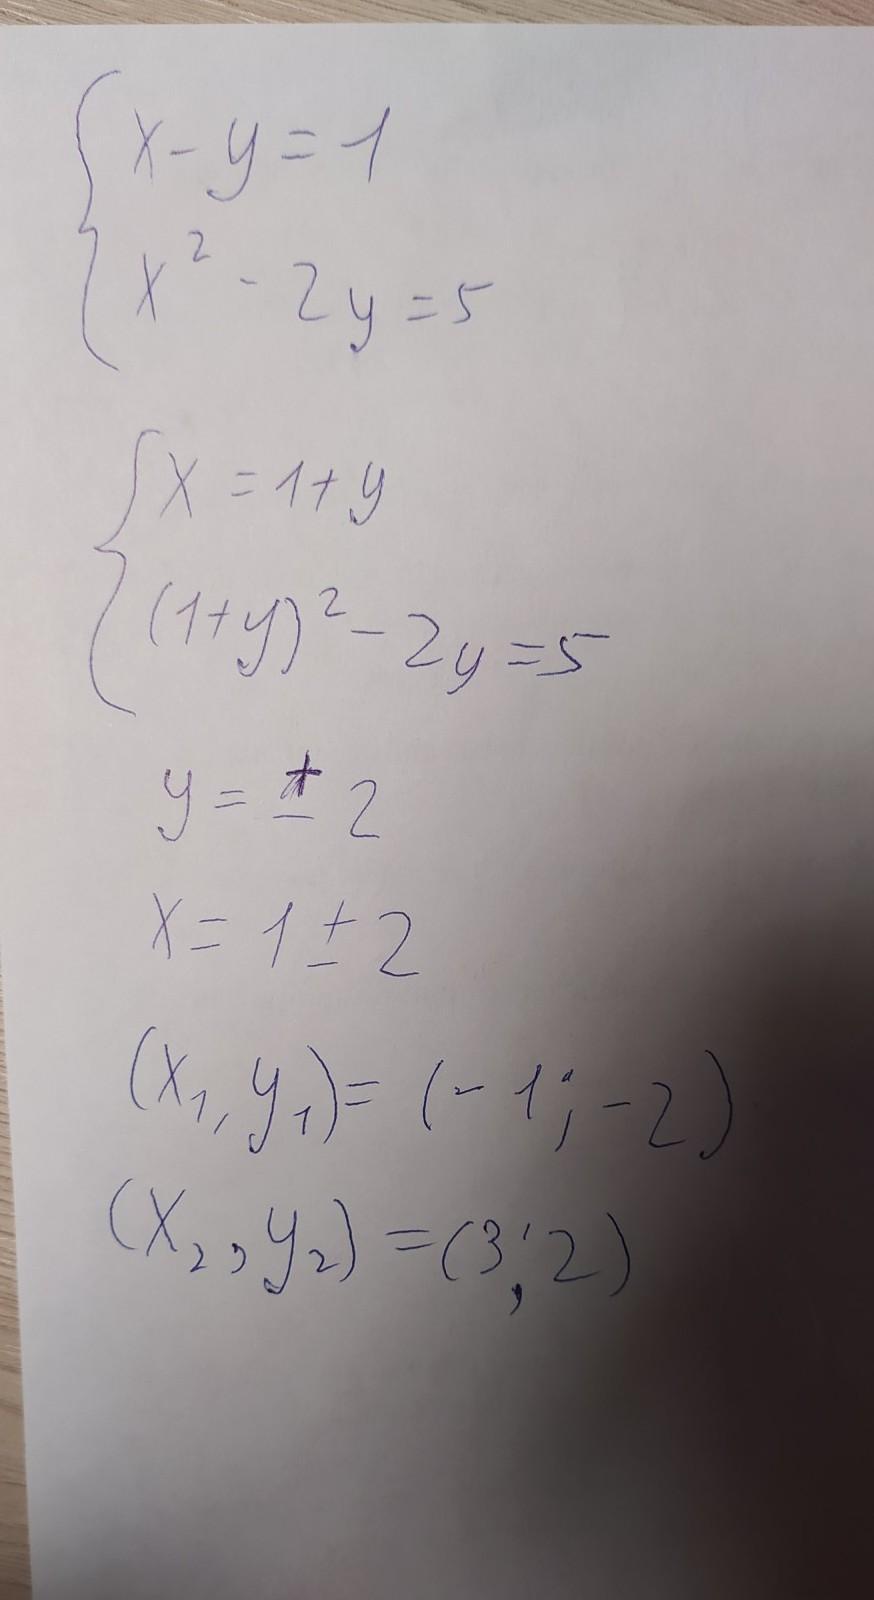 x - y = 1
x² - 2y = 5
x = 1 + y
(1+y)² - 2y = 5
y = ± 2
x = 1 ± 2
(x₁, y₁) = (-1; -2)
(x₂, y₂) = (3; 2)